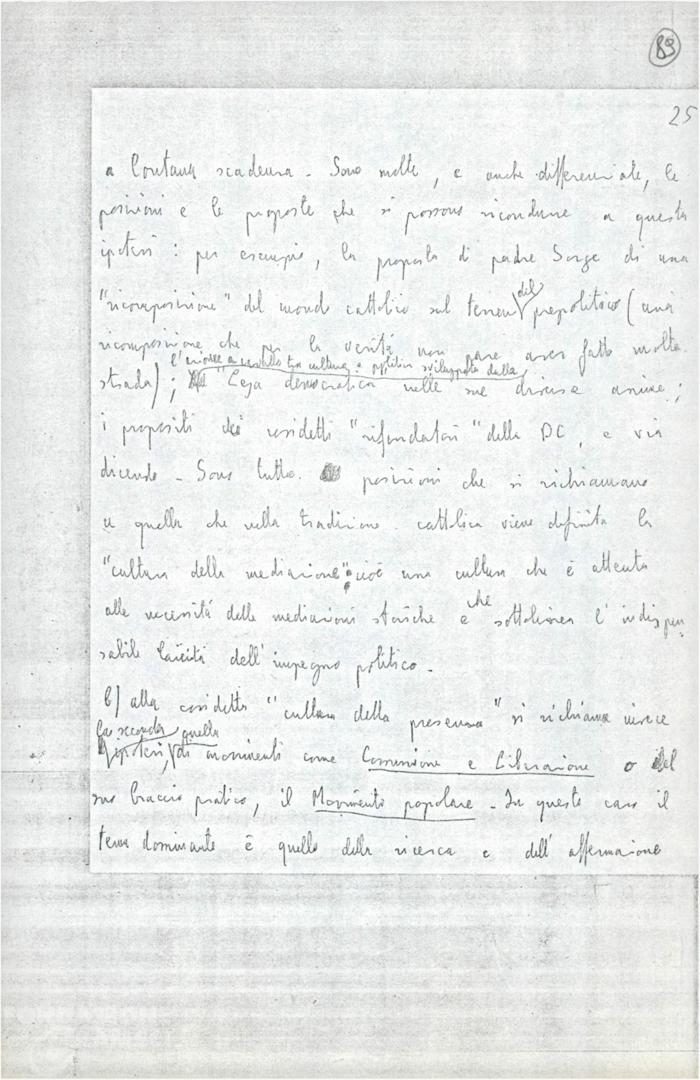 89
25
a lontana scadenza. Sono molte, e anche differenziate, le
posizioni e le proposte che si possono ricondurre a questa
ipotesi: per esempio, la proposta di padre Sorge di una
"ricomposizione" del mondo cattolico sul terreno del prepolitico (una
ricomposizione che per la verità non pare aver fatto molta
l'unione a cavallo tra cultura e politica sviluppata dalla
strada); "Lega democratica nelle sue diverse anime;
i propositi dei cosidetti "rifondatori" della DC, e via
dicendo. Sono tutte posizioni che si richiamano
a quella che nella tradizione cattolica viene definita la
"cultura della mediazione": cioè una cultura che è attenta
alle necessità delle mediazioni storiche e che sottolinea l'indispen
sabile laicità dell'impegno politico.
b) alla cosidetta "cultura della presenza" si richiama invece
la seconda quella
ipotesi, di movimenti come Comunione e Liberazione o del
suo braccio pratico, il Movimento popolare. In questo caso il
tema dominante è quello della ricerca e dell'affermazione